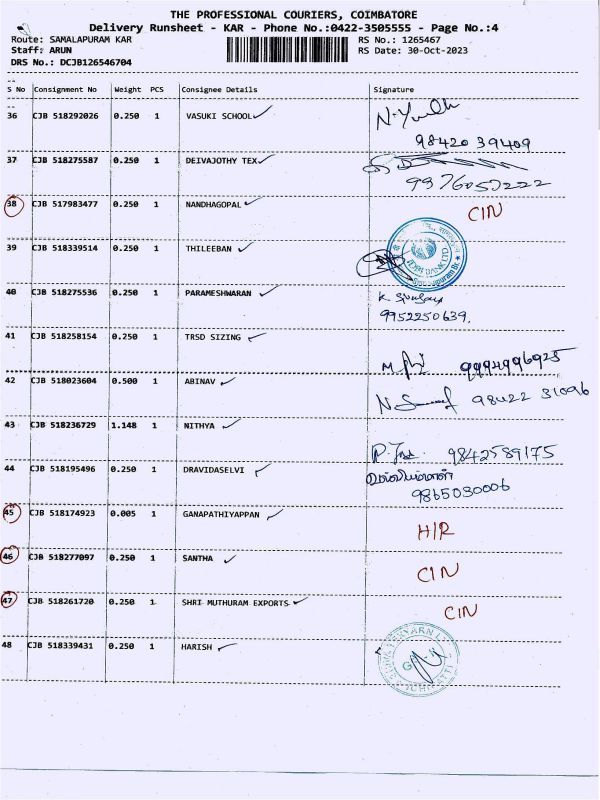 THE PROFESSIONAL COURIERS, COIMBATORE
Delivery Runsheet - KAR - Phone No.:0422-3505555 - Page No.:4
Route: SAMALAPURAM KAR RS No.: 1265467
Staff: ARUN RS Date: 30-Oct-2023
DRS No.: DCJB126546704
S No Consignment No Weight PCS Consignee Details Signature
36 CJB 518292026 0.250 1 VASUKI SCHOOL
98420 39409
37 CJB 518275587 0.250 1 DEIVAJOTHY TEX
9976057222
38 CJB 517983477 0.250 1 NANDHAGOPAL CIN
39 CJB 518339514 0.250 1 THILEEBAN
40 CJB 518275536 0.250 1 PARAMESHWARAN K.
9952250639.
41 CJB 518258154 0.250 1 TRSD SIZING
M 9994996925
42 CJB 518023604 0.500 1 ABINAV N. 98422 31096
43 CJB 518236729 1.148 1 NITHYA
P. 9842589175
44 CJB 518195496 0.250 1 DRAVIDASELVI
9865030006
45 CJB 518174923 0.005 1 GANAPATHIYAPPAN H/R
46 CJB 518277097 0.250 1 SANTHA CIN
47 CJB 518261720 0.250 1 SHRI MUTHURAM EXPORTS CIN
48 CJB 518339431 0.250 1 HARISH